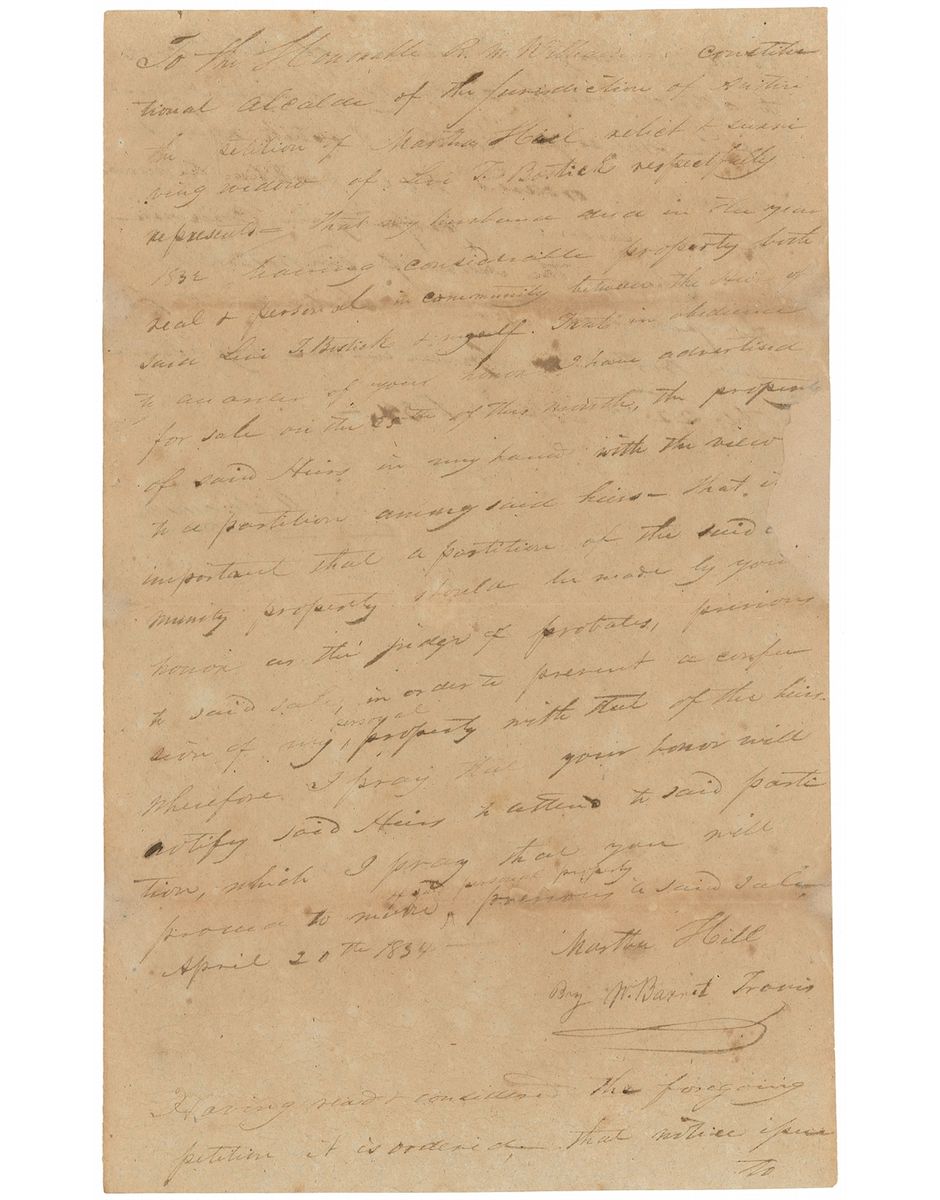 To the Honorable R. M. William constitu
tional Alcalde of the Jurisdiction of Austin
the petition of Martha Hill relict & survi
ving widow of Levi T. Bostick respectfully
represents— that my husband died in the year
1832 having considerable property both
real & personal in community between the heirs of
said Levi T. Bostick & myself. That in obedience
to an order of your honor I have advertised
for sale on the 25th of this month, the property
of said Heirs in my hands with the view
to a partition among said heirs— that it
important that a partition of the said c
munity property should be made by you
honor as the judge of probates, previous
to said sale, in order to prevent a confu
sion of my personal property with that of the heirs.
Wherefore I pray that your honor will
notify said Heirs to attend to said parti
tion, which I pray that you will
proceed to make of the personal property previous to said sale
April 20th 1834—
Martha Hill
By W. Barret Travis
Having read & considered the foregoing
petition it is ordered, that notice issue
To